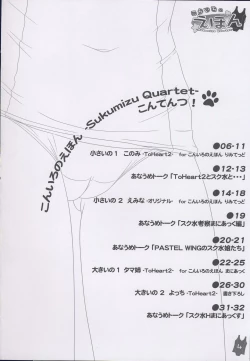 こんいろの
えほん
こんいろのえほん -Sukumizu Quartet-
こんてんつ！
●06-11
小さいの1 このみ -ToHeart2- for こんいろのえほん りみてっど
●12-13
あなうめトーク「ToHeart2とスク水と・・・」
●14-18
小さいの2 えみな -オリジナル for こんいろのえほん りみてっど
●19
あなうめトーク～スク水考察まにあっく編
●20-21
あなうめトーク「PASTEL WINGのスク水娘たち」
●22-25
大きいの1 タマ姉 -ToHeart2- for こんいろのえほん まにあっく
●26-30
大きいの2 よっち -ToHeart2- 書き下ろし
●31-32
あなうめトーク～スク水Hまにあっくす
4